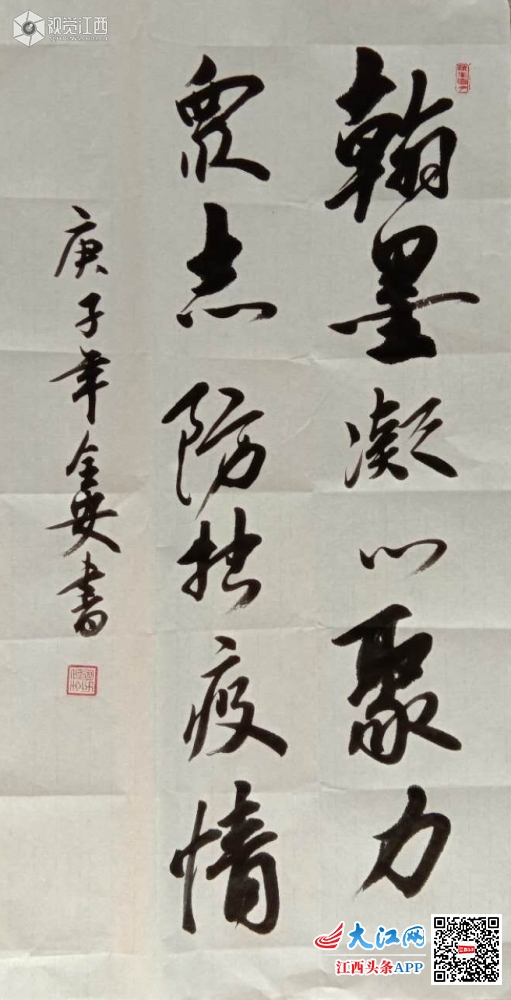 视觉江西
翰墨凝心聚力
众志防控疫情
庚子年全安书
大江网
江西头条APP